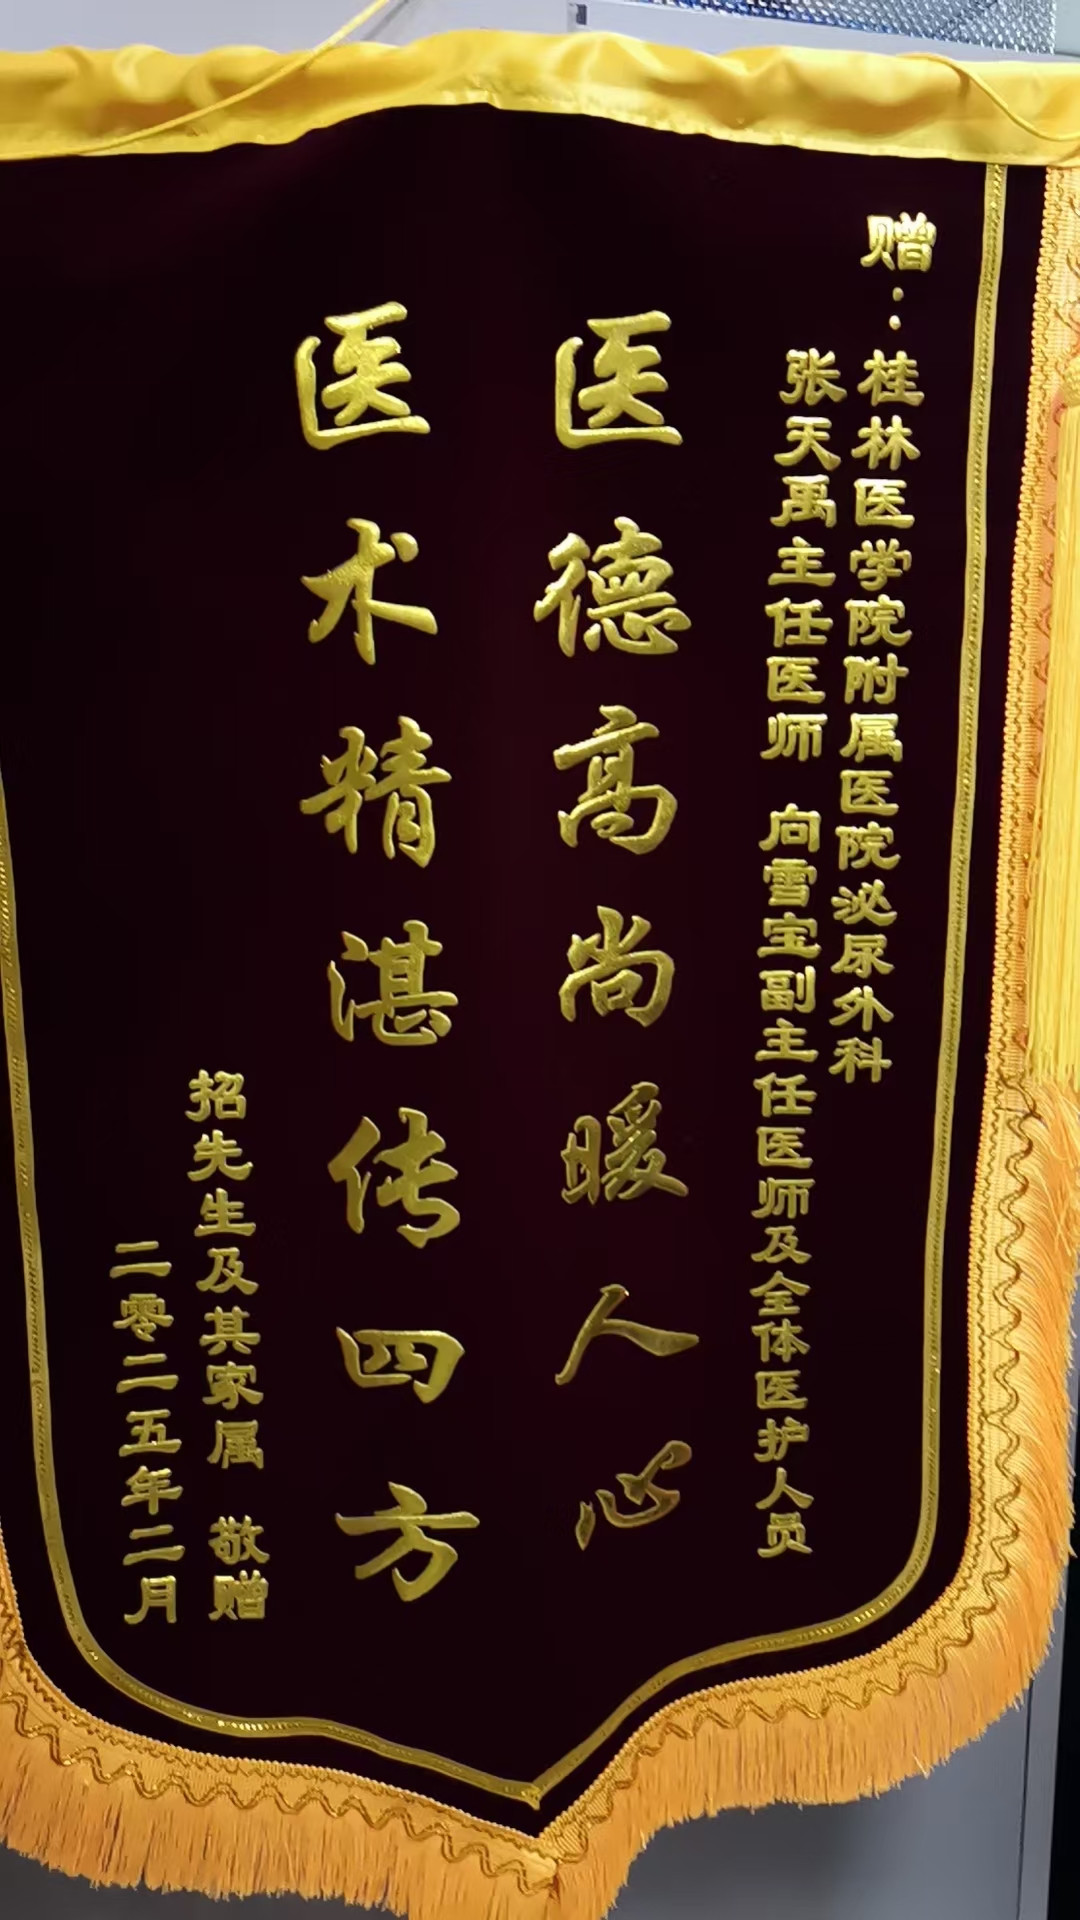 赠：桂林医学院附属医院泌尿外科
张天禹主任医师 向雪宝副主任医师及全体医护人员
医德高尚暖人心
医术精湛传四方
招先生及其家属 敬赠
二零二五年二月